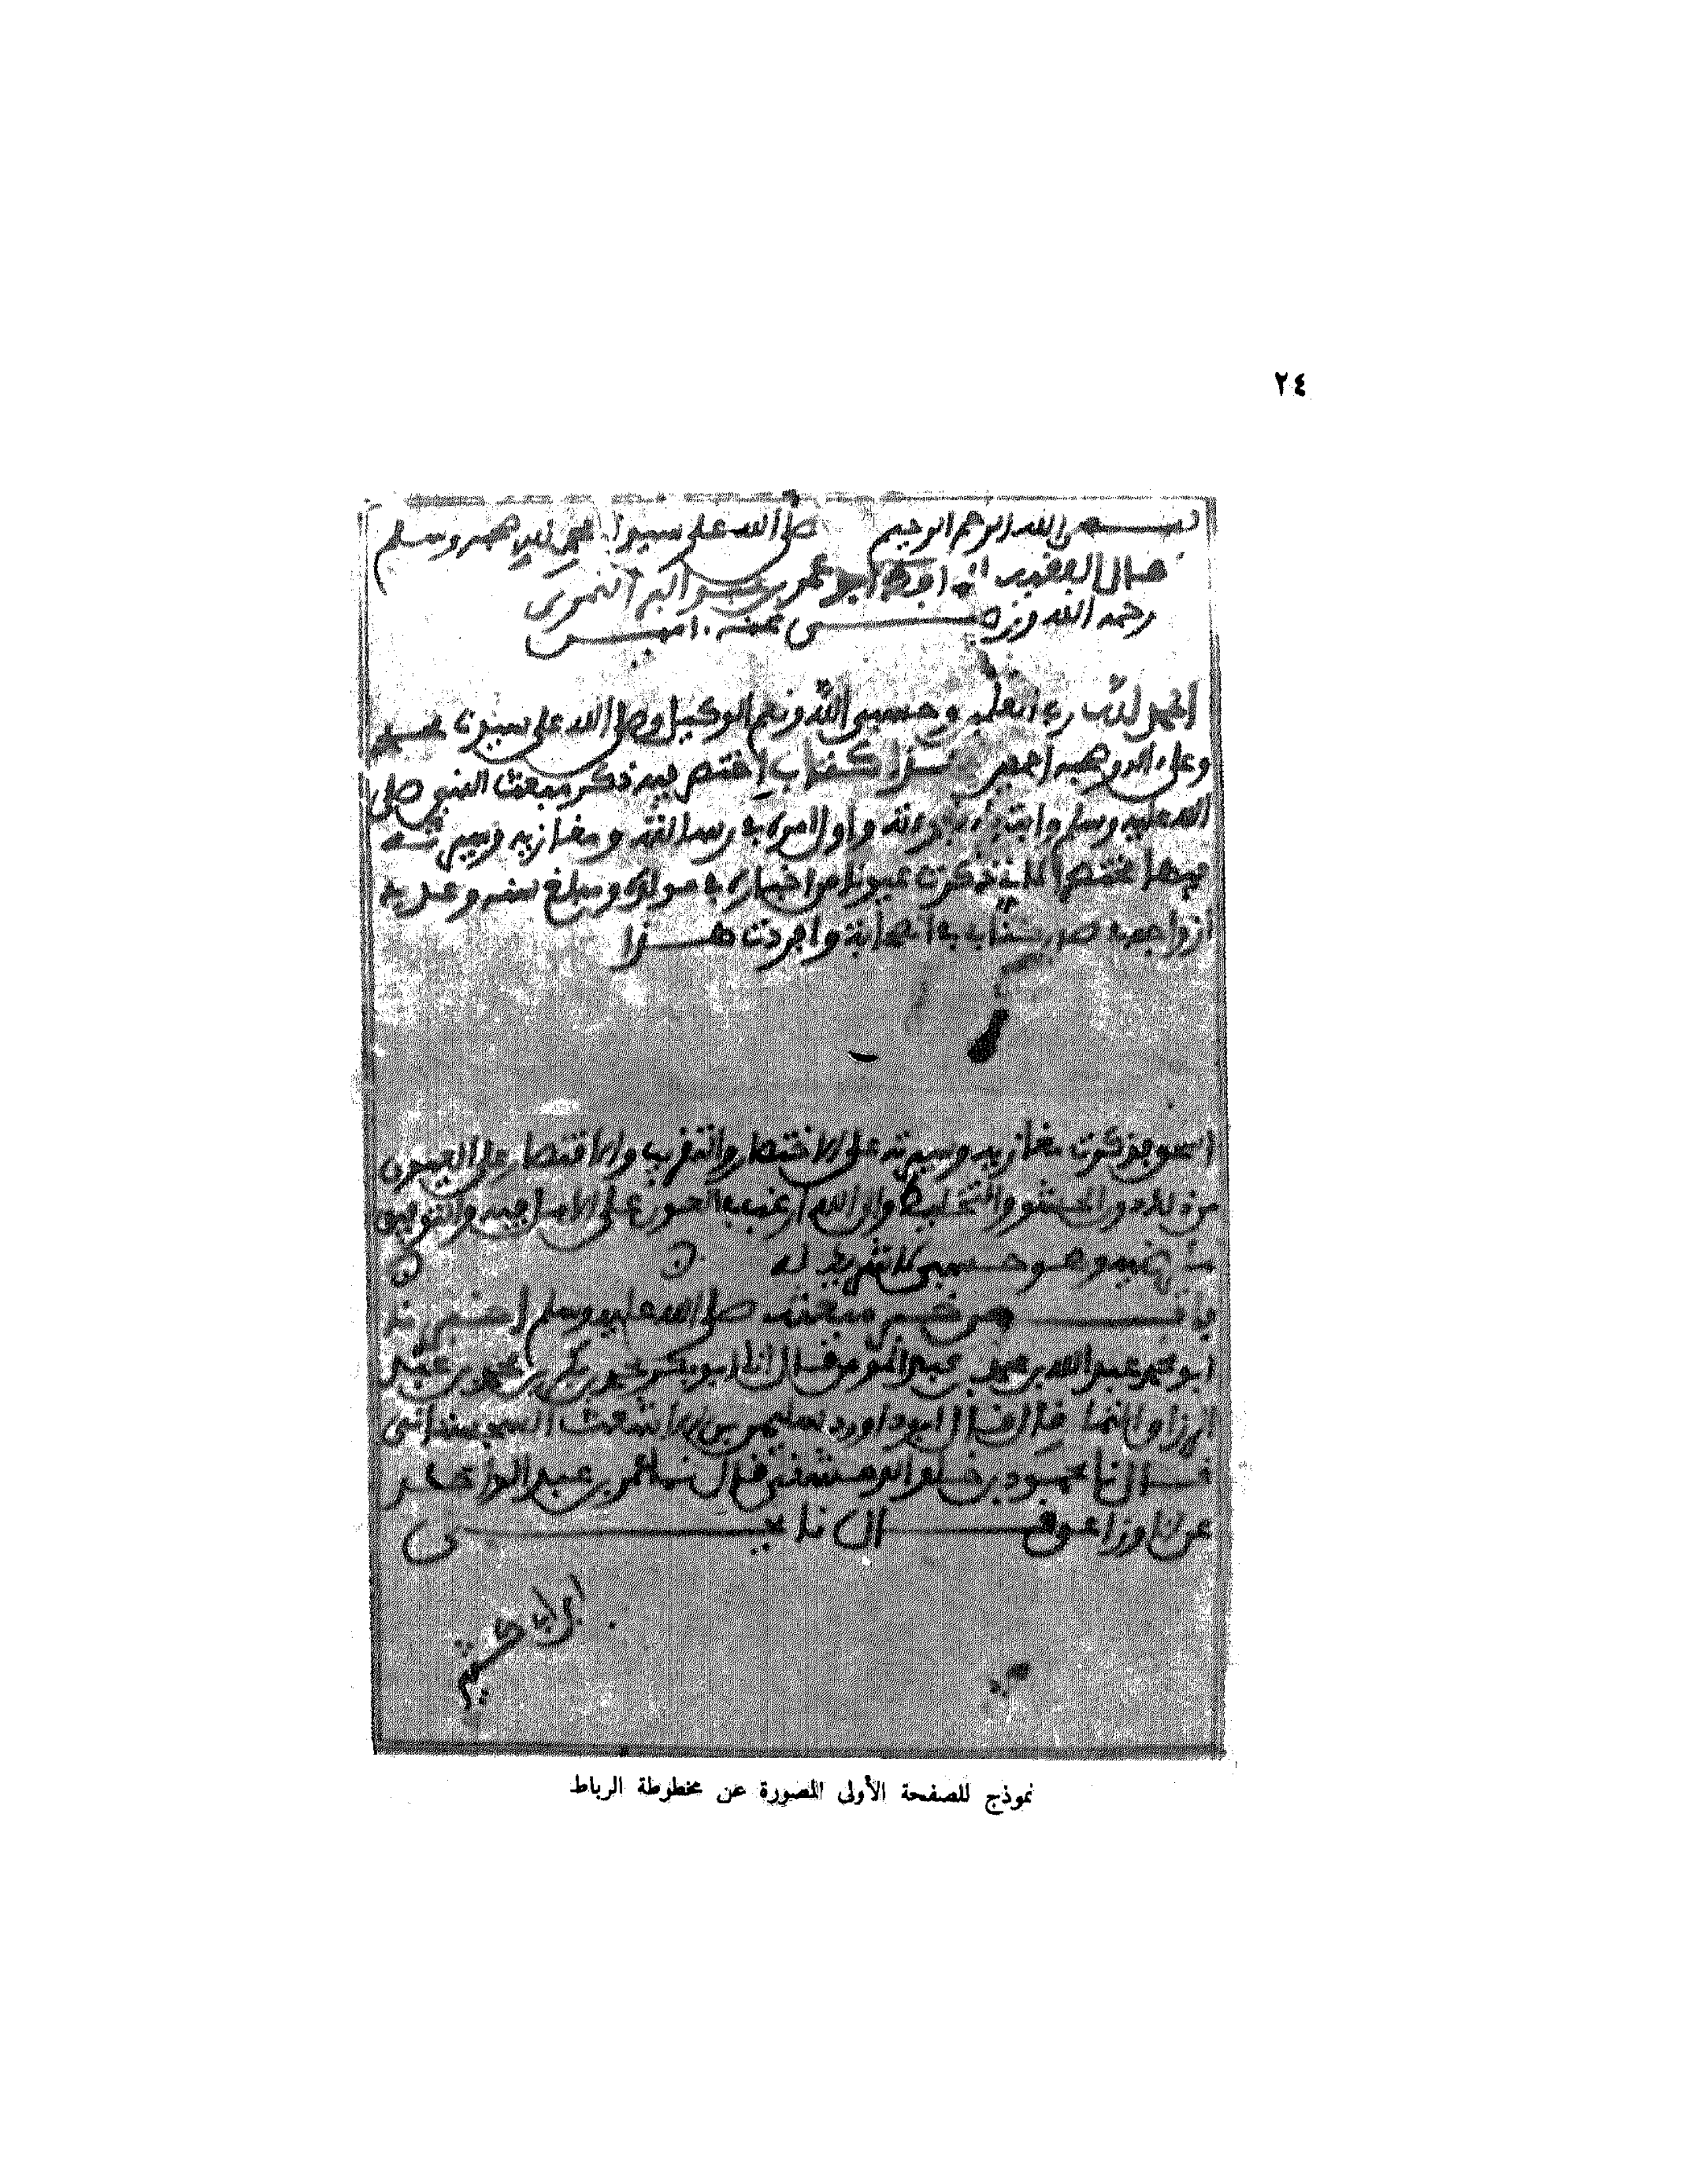 ٢٤
بسم الله الرحمن الرحيم صلى الله على سيدنا محمد وسلم
قال الفقيه الحافظ ابو عمر بن عبد البر النمري
رحمه الله ورضى عنه امين
الحمد لله رب العلمين وحسبي الله ونعم الوكيل وصلى الله على سيدنا محمد
وعلى اله وصحبه اجمعين هذا كتاب اختصرت فيه ذكر مبعث النبي صلى
الله عليه وسلم وابتداء نبوته واول امره في رسالته ومغازيه وسيرته
فيها مختصرا لاني ذكرت عيونا من اخباره في مولده ومبلغ سنه وعدد
ازواجه في صدر كتابي في الصحابة وافردت هذا
لذكرت مغازيه وسيرته على الاختصار والتقريب والاقتصار على العيون
من ذلك دون الحشو والتخليط والى الله ارغب في العون على الامل فيه والتوفيق
وهو حسبي لا شريك له
باب من خبر مبعثه صلى الله عليه وسلم
ابو محمد عبد الله بن محمد بن عبد المومن قال انا ابو بكر محمد بن بكر بن محمد بن عبد
الرزاق التمار قال قال ابو داود سليمن بن الاشعث السجستاني
قال نا محمود بن خلد الدمشقي قال نا عمر بن عبد الواحد
عن الاوزاعي قال نا يحيى
نموذج للصفحة الأولى المصورة عن مخطوطة الرباط